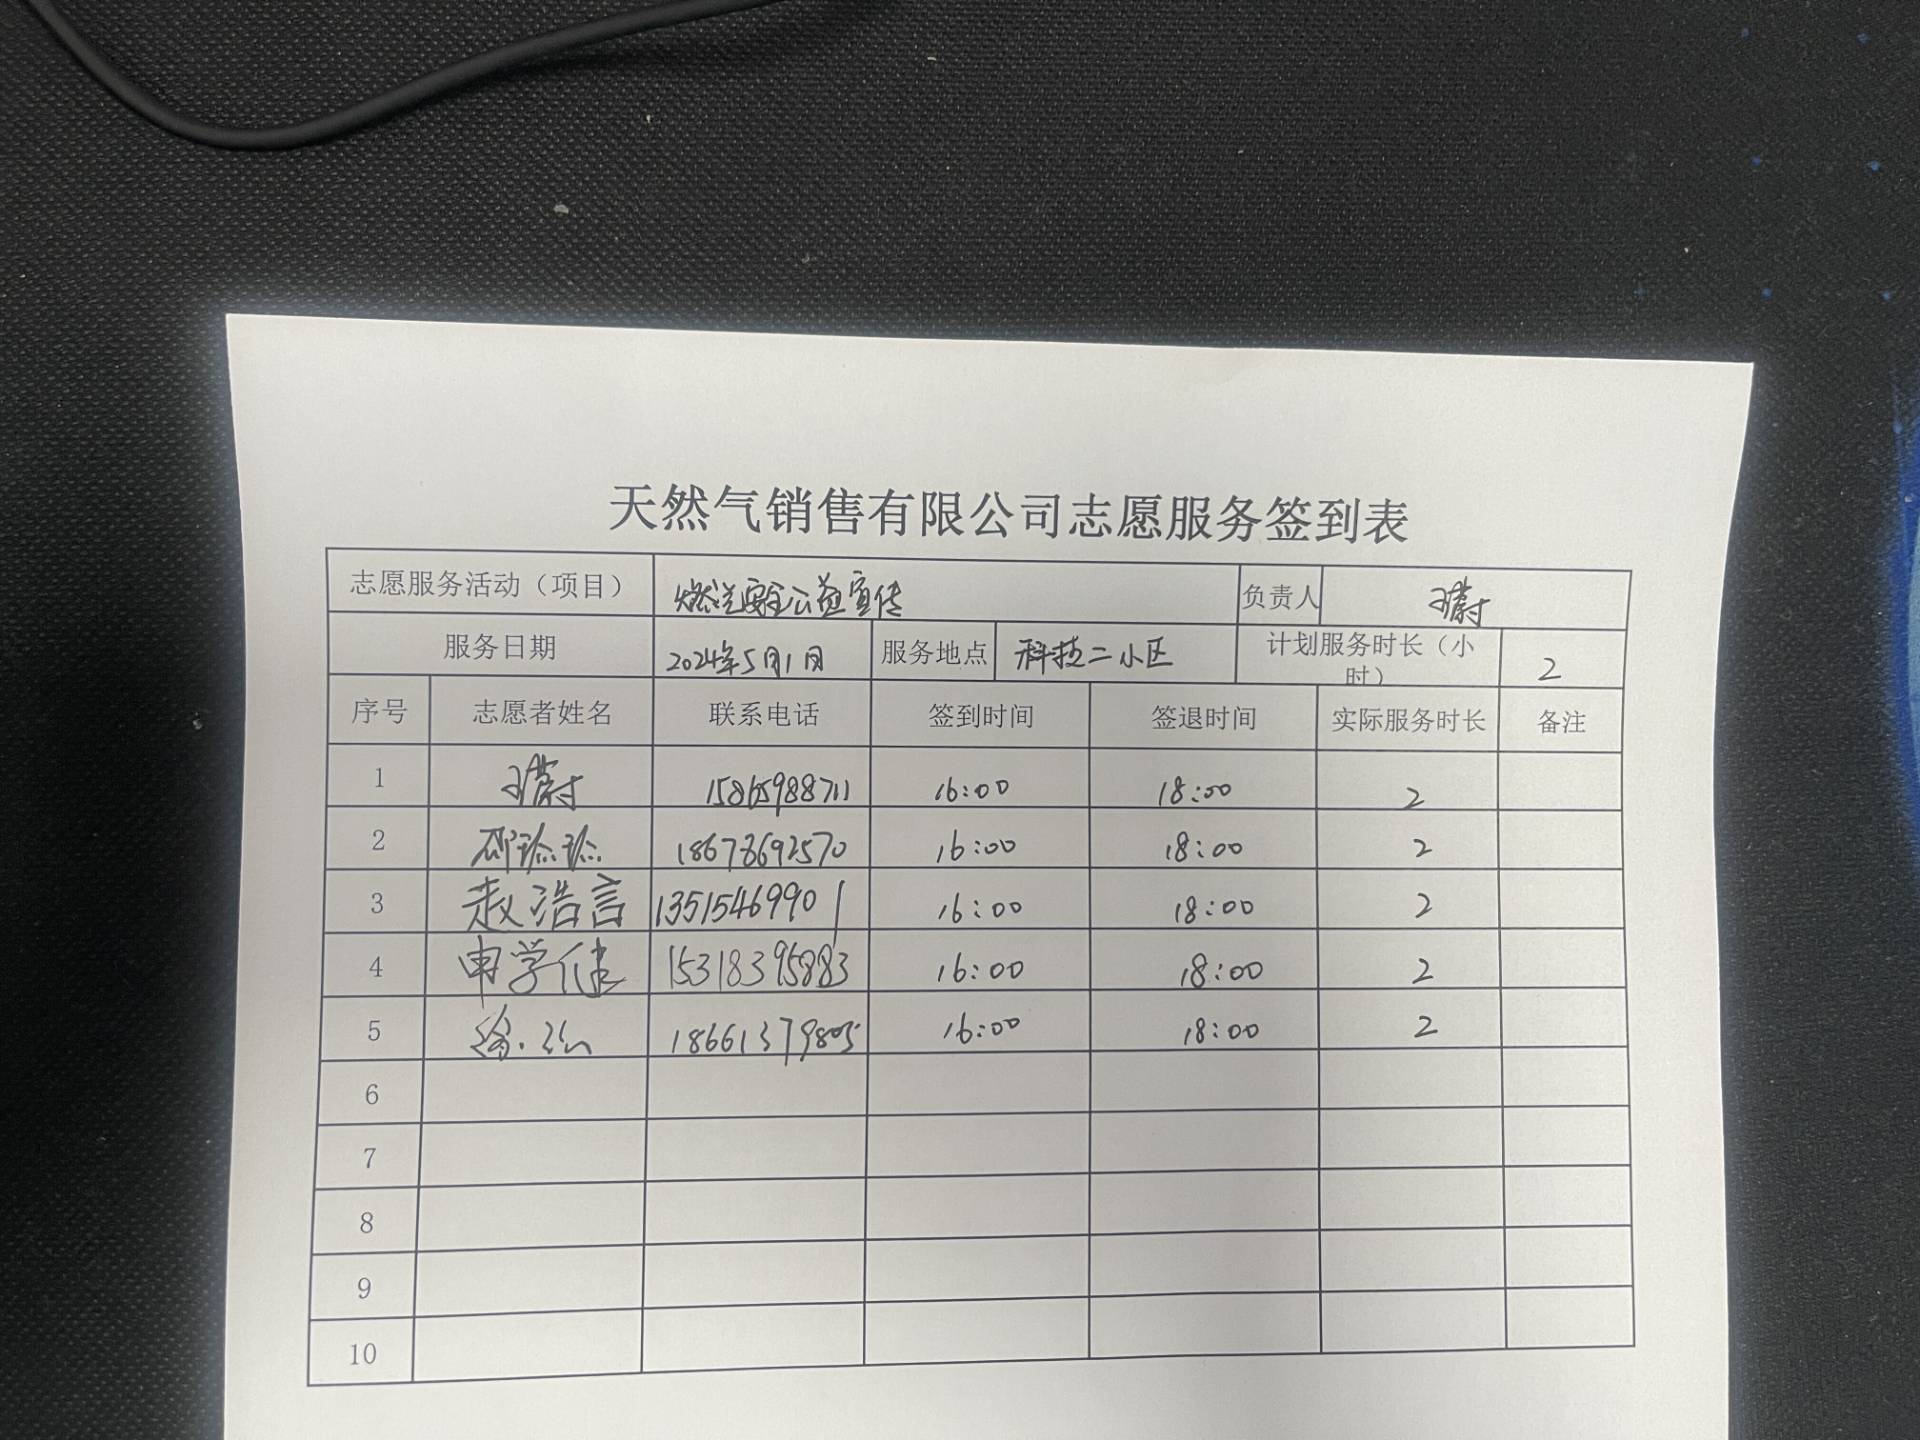 天然气销售有限公司志愿服务签到表
志愿服务活动（项目） 燃气安全公益宣传 负责人 王蔚
服务日期 2024年5月1日 服务地点 科技二小区 计划服务时长（小时） 2
序号 志愿者姓名 联系电话 签到时间 签退时间 实际服务时长 备注
1 王蔚 15865988711 16:00 18:00 2
2 邓 18678692570 16:00 18:00 2
3 赵浩言 13515469901 16:00 18:00 2
4 申学健 15318395883 16:00 18:00 2
5 徐 18661379805 16:00 18:00 2
6
7
8
9
10